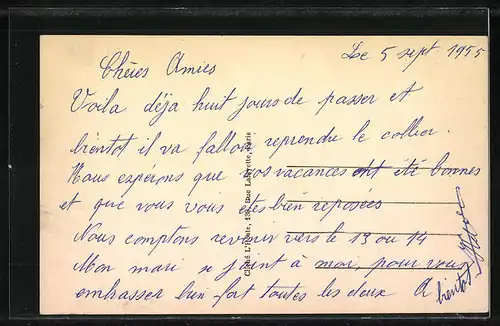 Le 5 sept 1955
Chères Amies
Voila déja huit jours de passer et
bientot il va falloir reprendre le collier.
Nous espérons que vos vacances ont été bonnes
et que vous vous etes bien reposées
Nous comptons revenir vers le 13 ou 14
Mon mari se joint à moi, pour vous
embrasser bien fort toutes les deux A
bientot
Cliché L'Hoste, Rue Lafayette, Paris